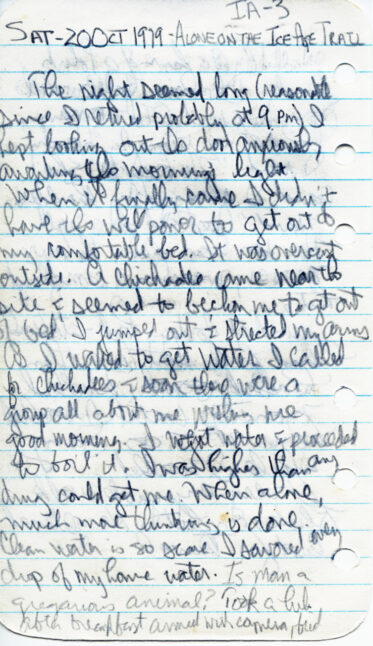 IA-3
SAT-20 OCT 1979-ALONE ON THE ICE AGE TRAIL
The night seemed long (reasonable
since I retired probably at 9 PM) I
kept looking out the door anxiously
awaiting the morning light.
When it finally came I didn't
have the will power to get out of
my comfortable bed. It was overcast
outside. A chickadee came near the
site & seemed to beckon me to get out
of bed. I jumped out & streched my arms
As I walked to get water I called
for chickadees & soon there were a
group all about me wishing me
good morning. I got water & proceeded
to boil it. I was higher than any
drug could get me. When alone,
much more thinking is done.
Clean water is so scarce I savored every
drop of my home water. Is man a
gregarious animal? Took a hike
after breakfast armed with camera,